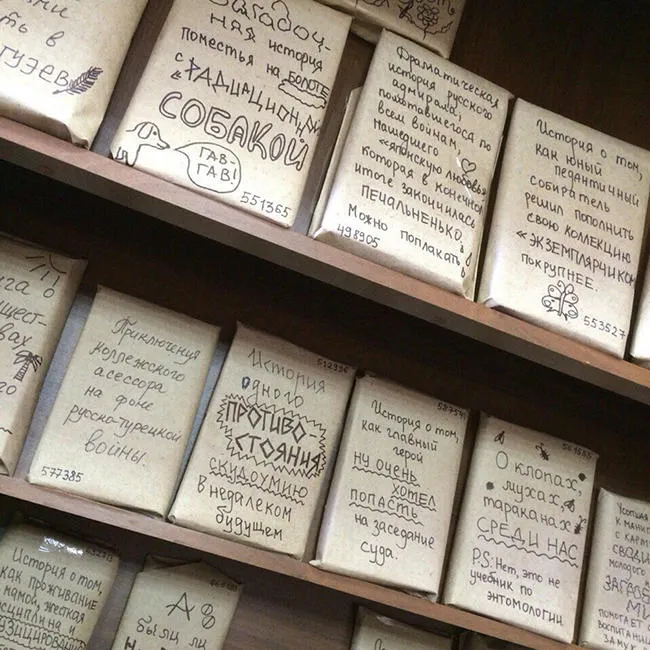 ть в
ГУЗЕВ
Загадоч-
ная история
поместья на болоте
с «РАДИАЦИОННОЙ
СОБАКОЙ
ГАВ-
ГАВ!
551365
Драматическая
история русского
адмирала,
помотавшегося по
всем войнам,
нашедшего
«японскую любовь»
которая в конечном
итоге закончилась
ПЕЧАЛЬНЕНЬКО,
можно поплакать
498905
История о том,
как юный
педантичный
собиратель
решил пополнить
свою коллекцию
«ЭКЗЕМПЛЯРЧИКОМ
покрупнее.
553527
Приключения
коллежского
асессора
на фоне
русско-турецкой
войны.
577385
История
одного
ПРОТИВО-
СТОЯНИЯ
СКУДОУМИЮ
в недалеком
будущем
История о том,
как главный
герой
ну очень
хотел
попасть
на заседание
суда.
О клопах,
мухах и
тараканах
СРЕДИ НАС
P.S: Нет, это не
учебник по
энтомологии
История о том,
как проживание
с мамой, жесткая
А В
были ли